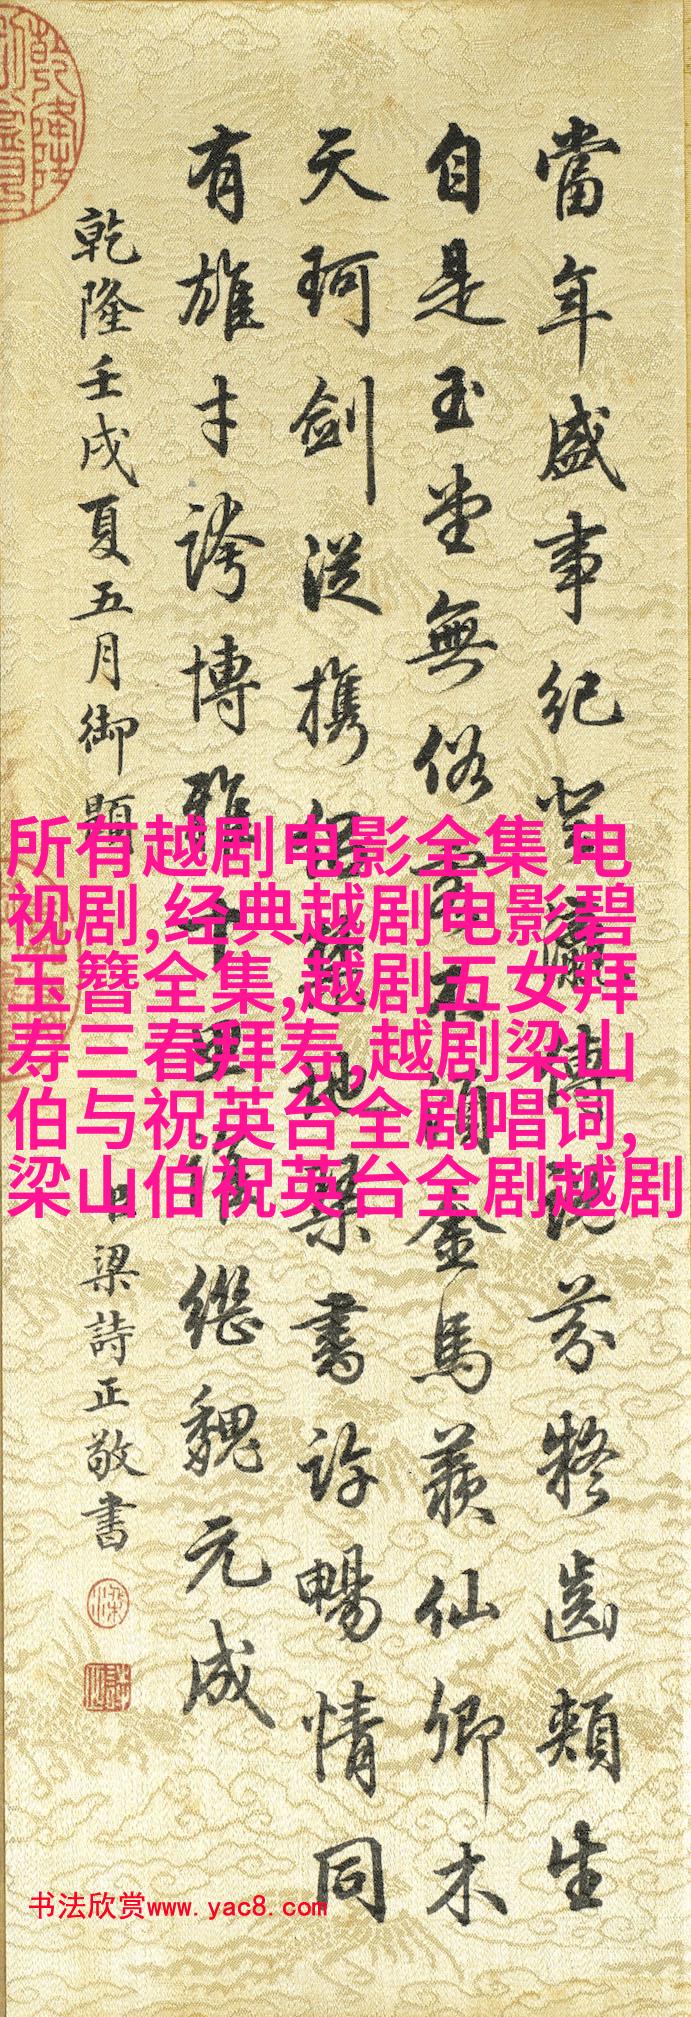 當年盛事紀登瀛傳說芬齒頰生
自是玉堂無俗客不須金馬羨仙卿木
天珂劍從携地琴書許暢情同
有雄才誇博雅十思繼魏元成
乾隆壬戌夏五月御題
臣梁詩正敬書
所有越剧电影全集 电
视剧,经典越剧电影碧
玉簪全集,越剧五女拜
寿三春拜寿,越剧梁山
伯与祝英台全剧唱词,
梁山伯祝英台全剧越剧
书法欣赏www.yac8.com